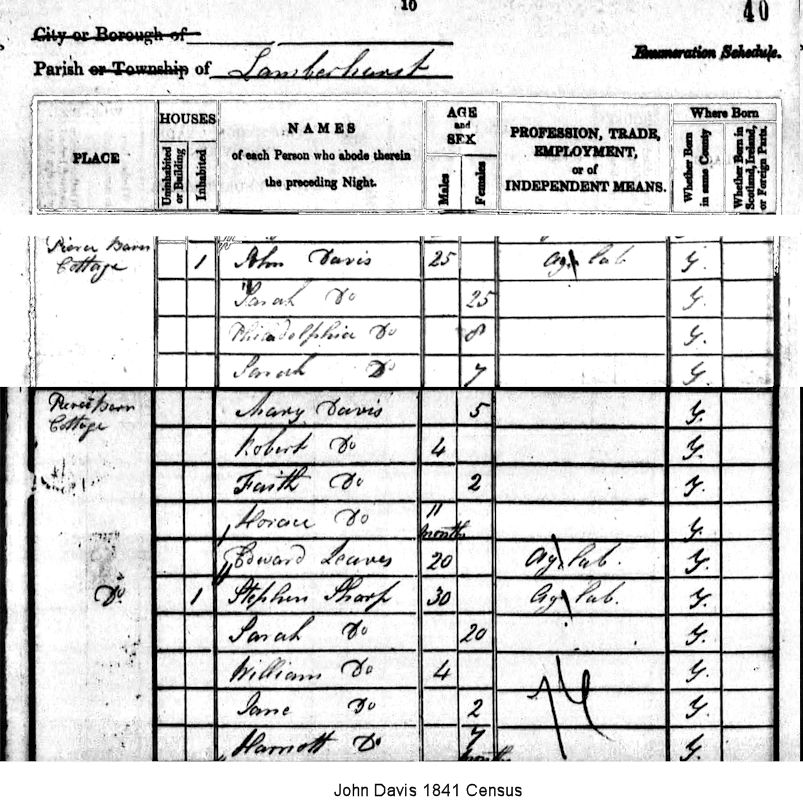 10
40
City or Borough of
Enumeration Schedule.
Parish or Township of Lamberhurst
PLACE
HOUSES
Uninhabited or Building
Inhabited
NAMES
of each Person who abode therein
the preceding Night.
AGE
and
SEX
Males
Females
PROFESSION, TRADE,
EMPLOYMENT,
or of
INDEPENDENT MEANS.
Where Born
Whether Born in same County
Whether Born in Scotland, Ireland, or Foreign Parts.
Barn
Cottage 1 John Davis 25 Ag Lab Y.
Sarah Do 25 Y.
Philadelphia Do 8 Y.
Sarah Do 7 Y.
Barn
Cottage Mary Davis 5 Y.
Robert Do 4 Y.
Faith Do 2 Y.
Horace Do 11 months Y.
Edward Leaves 20 Ag Lab. Y.
Do 1 Stephen Sharp 30 Ag Lab. Y.
Sarah Do 20 Y.
William Do 4 Y.
Jane Do 2 Y.
Harriott Do 7 months Y.
John Davis 1841 Census